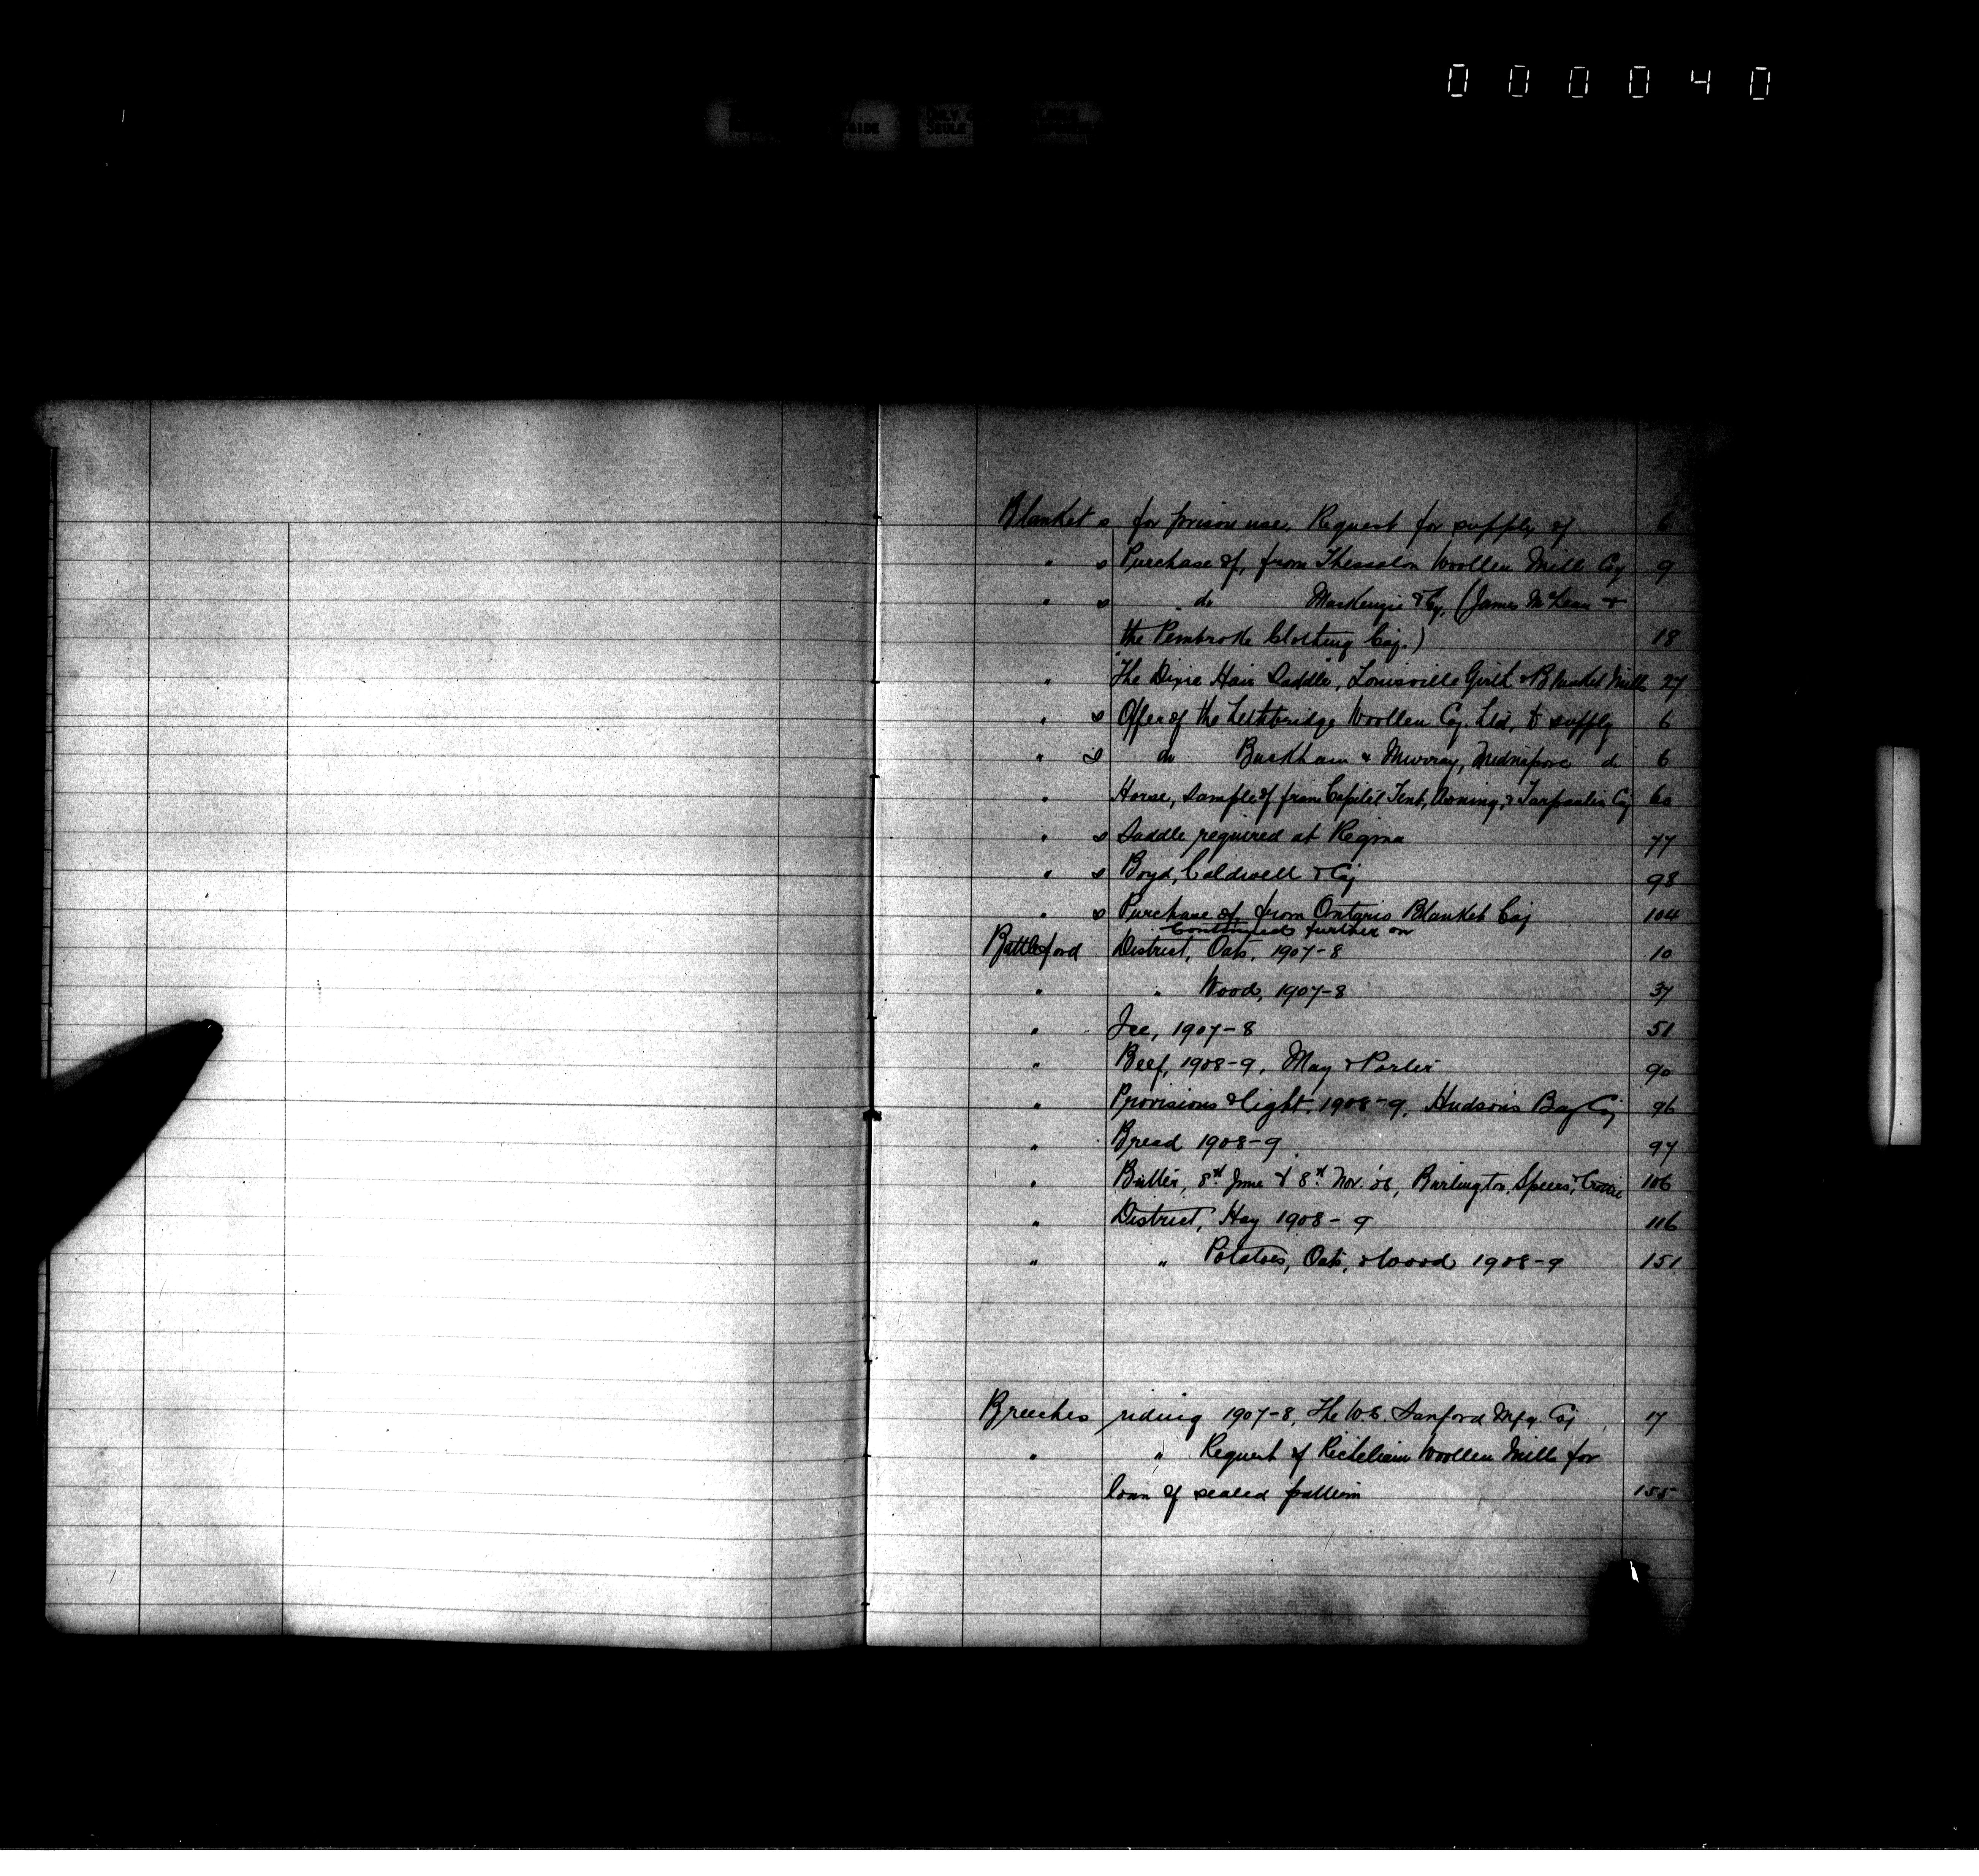 000040
Blankets for prison use, Request for supply of 6
" s Purchase of, from Thessalon Woollen Mill Coy 9
" s " do MacKenzie & Cy, (James McLean &
the Pembroke Clothing Coy.) 18
" "The Dixie Hair Saddle", Louisville Girth & Blanket Mills 27
" s Offer of the Lethbridge Woollen Cy. Ltd. to supply 6
" s do Buckham & Murray, Midnapore do 6
" Horse, Sample of from Capital Tent, Awning, & Tarpaulin Cy 60
" s Saddle required at Regina 77
" s Boyd, Caldwell & Coy 98
" s Purchase of, from Ontario Blanket Coy 104
Continued further on
Battleford District, Oats, 1907-8 10
" " Wood, 1907-8 37
" Ice, 1907-8 51
" Beef, 1908-9, May & Porter 90
" Provisions & light, 1908-9, Hudson's Bay Coy 96
" Bread 1908-9 97
" Butter, 8th June & 8th Nov. '08, Burlington, Speers, & 106
" District, Hay 1908-9 116
" " Potatoes, Oats, & Wood 1908-9 151
Breeches riding 1907-8, The W.E. Sanford Mfg. Coy 17
" " Request of Richelieu Woollen Mills for
loan of sealed pattern 155